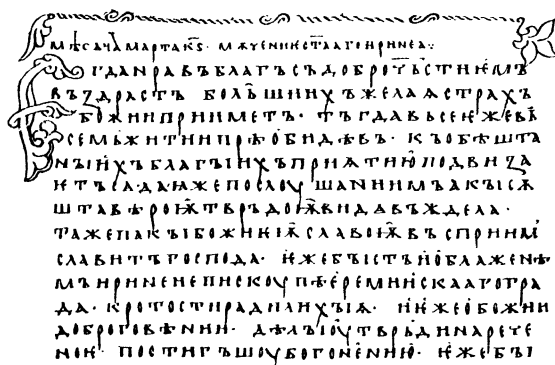 мѣсѧца марта к҃ѕ· мѫчениѥ ст҃ааго иринеа·:
Єгда нравъ благъ съ доброчьстиѥмъ
въздрастъ больши ихъ желаѧ страхъ
божии приметъ· тъгда вьсе ѥже въ
семь житии прѣобидѣвъ· къ обѣшта
ныихъ благыихъ приѧтию подвиза
ѥтъ сѧ· да ꙗже послоушаниимъ акы сѫ
шта вѣроѭ тврьдоѭ видѧ въждела·
таже пакы божиѥѭ славоѭ въсприимъ
славитъ господа· ѥже бысть и о блаженѣ
мь иринеи епискоупѣ еремиискааго гра
да· кротости ради лихыѧ· и ѥже о божии
доброговѣнии· дѣлы оутврьди нарече
ноѥ· постигъшоу бо гонению· ѥже бы